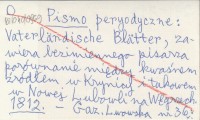 Pismo peryodyczne:
Vaterländische Blätter, za-
wiera bezimiennego pisarza
porównanie między kwaśnem
źródłem w Krynicy i takowem
w Nowej Lubowli na Węgrzech
1812. - Gaz. Lwowska nr. 36.